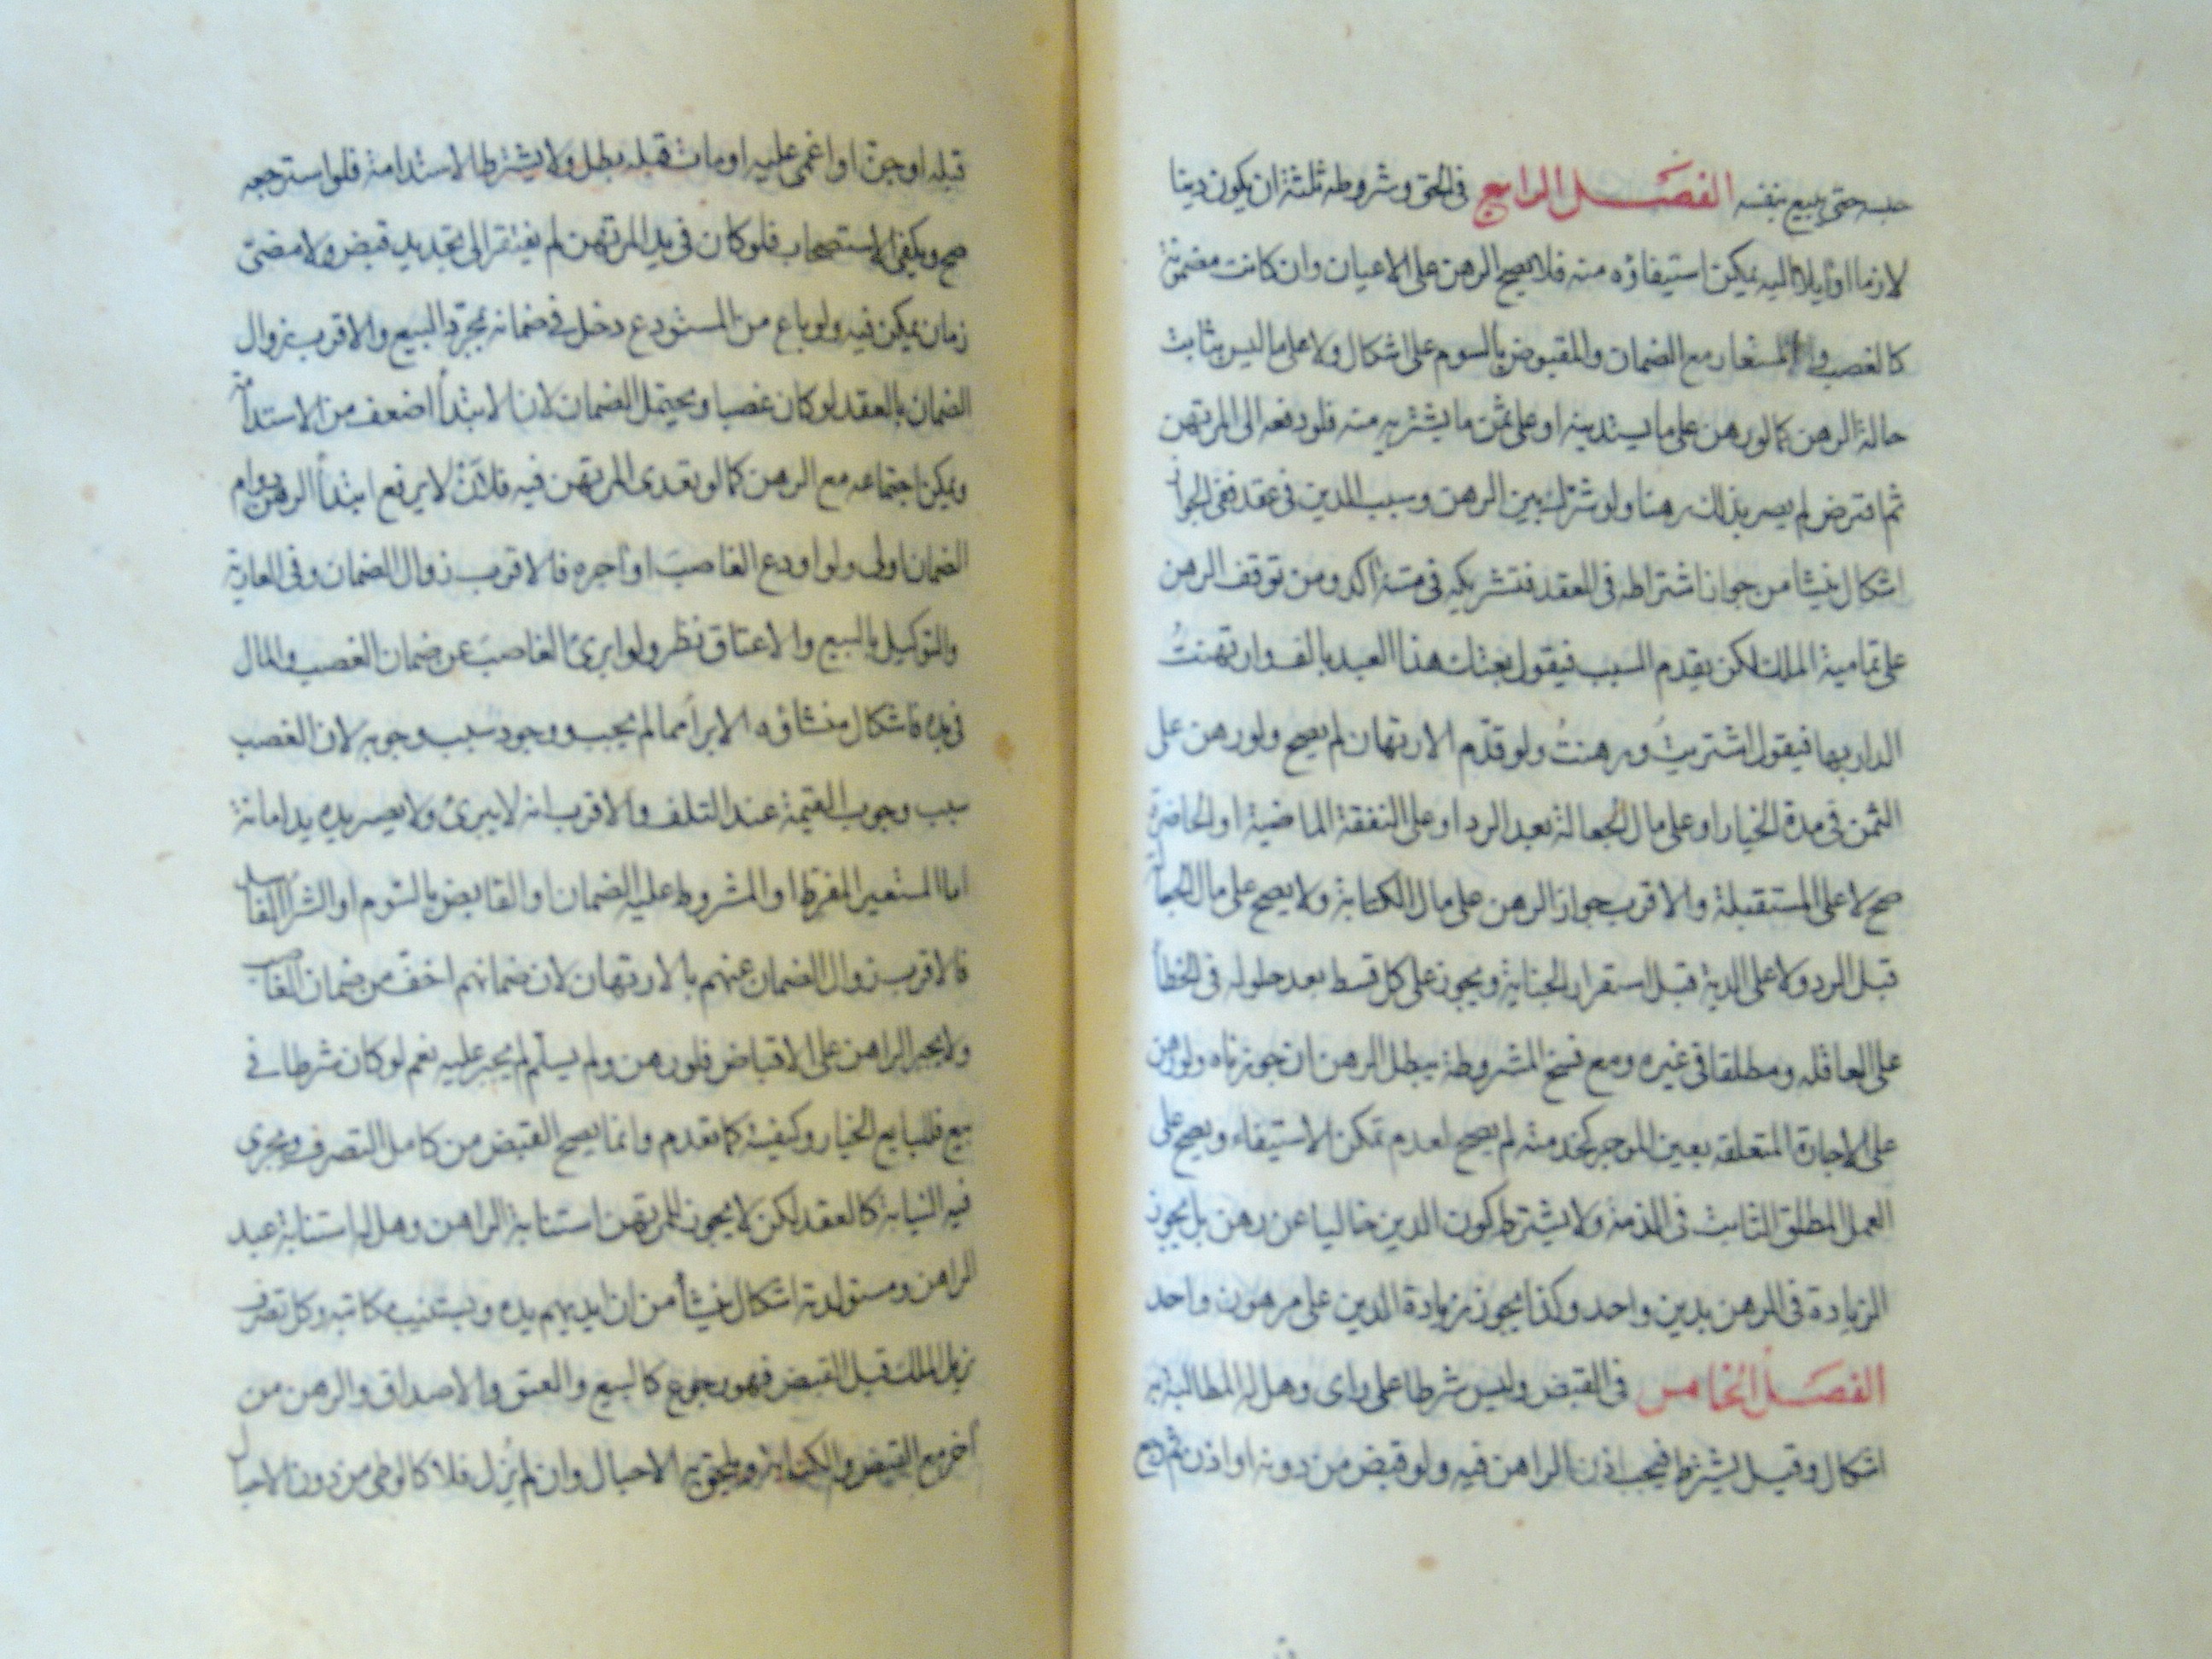 حبسه حتى يبيع بنفسه الفصل الرابع في الحق وشروطه ثلثة ان يكون دينا
لازما او آيلا اليه يمكن استيفاؤه منه فلا يصح الرهن على الاعيان وان كانت مضمونة
كالغصب والمستعار مع الضمان والمقبوض بالسوم على اشكال ولا على ما ليس بثابت
حالة الرهن كما لو رهن على ما يستدينه او على ثمن ما يشتريه منه فلو دفعه الى المرتهن
ثم اقترض لم يصر بذلك رهنا ولو شرك بين الرهن وسبب الدين في عقد ففي الجواز
اشكال ينشا من جواز اشتراطه في العقد فتشريكه في متنه اكد ومن توقف الرهن
على تمامية الملك لكن يقدم السبب فيقول بعتك هذا العبد بالف وارتهنت
الدار بها فيقول اشتريتُ ورهنتُ ولو قدّم الارتهان لم يصح ولو رهن على
الثمن في مدة الخيار او على مال الجعالة بعد الرد او على النفقة الماضية او الحاضرة
صح لا على المستقبلة والاقرب جواز الرهن على مال الكتابة ولا يصح على مال الجعالة
قبل الرد ولا على الدية قبل استقرار الجناية ويجوز على كل قسط بعد حلوله في الخطأ
على العاقله ومطلقا في غيره ومع فسخ المشروطة يبطل الرهن ان جوزناه ولو رهن
على الاجارة المتعلقه بعين الموجر كخدمته لم يصح لعدم تمكن الاستيفاء ويصح على
العمل المطلق الثابت في الذمة ولا يشترط كون الدين خاليا عن رهن بل يجوز
الزيادة في الرهن بدين واحد وكذا يجوز زيادة الدين على مرهون واحد
الفصل الخامس في القبض وليس شرطا على راى وهل له المطالبة به
اشكال وقيل يشترط فيجب اذن الراهن فيه ولو قبض من دونه او اذن ثم رجع
قبله او جن او اغمى عليه او مات قبله بطل ولا يشترط الاستدامة فلو استرجعه
صح ويكفي الاستصحاب فلو كان في يد المرتهن لم يفتقر الى تجديد قبض ولا مضىّ
زمان يمكن فيه ولو باع من المستودع دخل في ضمانه بمجرد البيع والاقرب زوال
الضمان بالعقد لو كان غصبا ويحتمل الضمان لان الابتدأ اضعف من الاستدامة
ويمكن اجتماعه مع الرهن كما لو تعدى المرتهن فيه فلان لا يرفع ابتدأ الرهن دوام
الضمان اولى ولو اودع الغاصبَ او آجره فالاقرب زوال الضمان وفي العارية
والتوكيل بالبيع والاعتاق نظر ولو ابرئ الغاصبَ عن ضمان الغصب والمال
في يده فاشكال منشاؤه الابرأ مما لم يجب ووجود سبب وجوبه لان الغصب
سبب وجوب القيمة عند التلف والاقرب انه لا يبرئ ولا يصير يده يد امانة
اما المستعير المفرط او المشروط عليه الضمان او القابض بالسّوم او الشرأ الفاسد
فالاقرب زوال الضمان عنهم بالارتهان لان ضمانهم اخفّ من ضمان الغاصب
ولا يجبر الراهن على الاقباض فلو رهن ولم يسلّم لم يجبر عليه نعم لو كان شرطا في
بيع فللبايع الخيار وكيفيته كما تقدم وانما يصح القبض من كامل التصرف ويجرى
فيه النيابة كالعقد لكن لا يجوز للمرتهن استنابة الراهن وهل له استنابة عبد
الراهن ومستولدته اشكال ينشأ من ان ايديهم يده ويستنيب مكاتبه وكل تصرف
يزيل الملك قبل القبض فهو رجوع كالبيع والعتق والاصداق والرهن من
آخر مع القبض والكتابة ويلحق به الاحبال وان لم يُزل فلا كالوطى من دون الاحبال